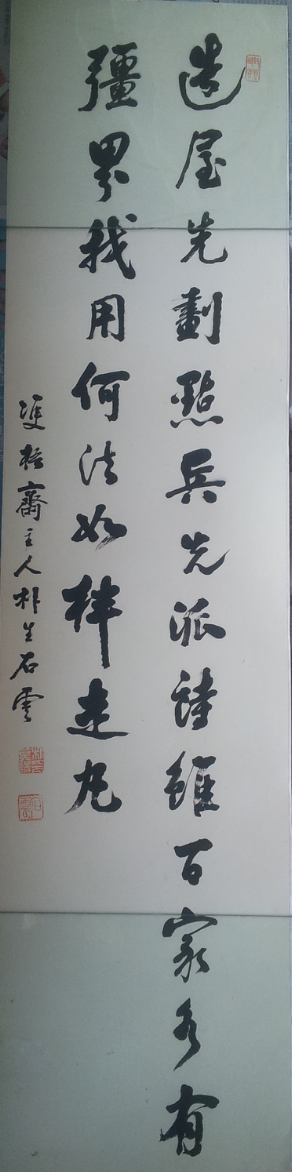 造屋先劃點兵先派詩雖百家各有
疆界我用何法如柈走丸
齋主人朴生石雲